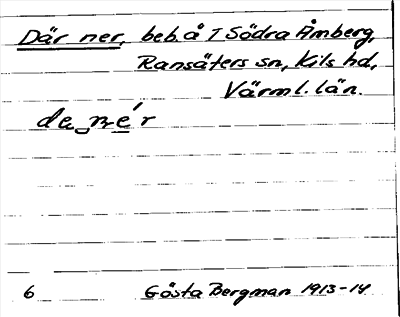 Där ner, beb. å 1 Södra Åmberg,
Ransäters sn, Kils hd,
Värml. län.
da‿ner
6 Gösta Bergman 1913-14